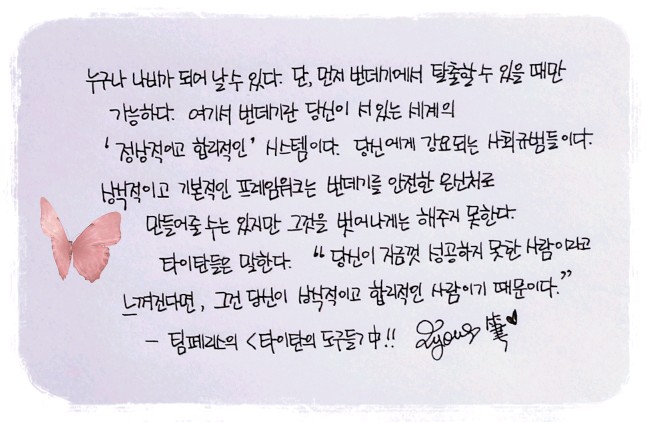 누구나 나비가 되어 날 수 있다. 단, 먼저 번데기에서 탈출할 수 있을 때만
가능하다. 여기서 번데기란 당신이 서 있는 세계의
'정상적이고 합리적인' 시스템이다. 당신에게 강요되는 사회규범들이다.
상식적이고 기본적인 프레임워크는 번데기를 안전한 은신처로
만들어줄 수는 있지만 그것을 벗어나게는 해주지 못한다.
타이탄들은 말한다. "당신이 지금껏 성공하지 못한 사람이라고
느껴진다면, 그건 당신이 상식적이고 합리적인 사람이기 때문이다."
- 팀페리스의 <타이탄의 도구들> 中!!